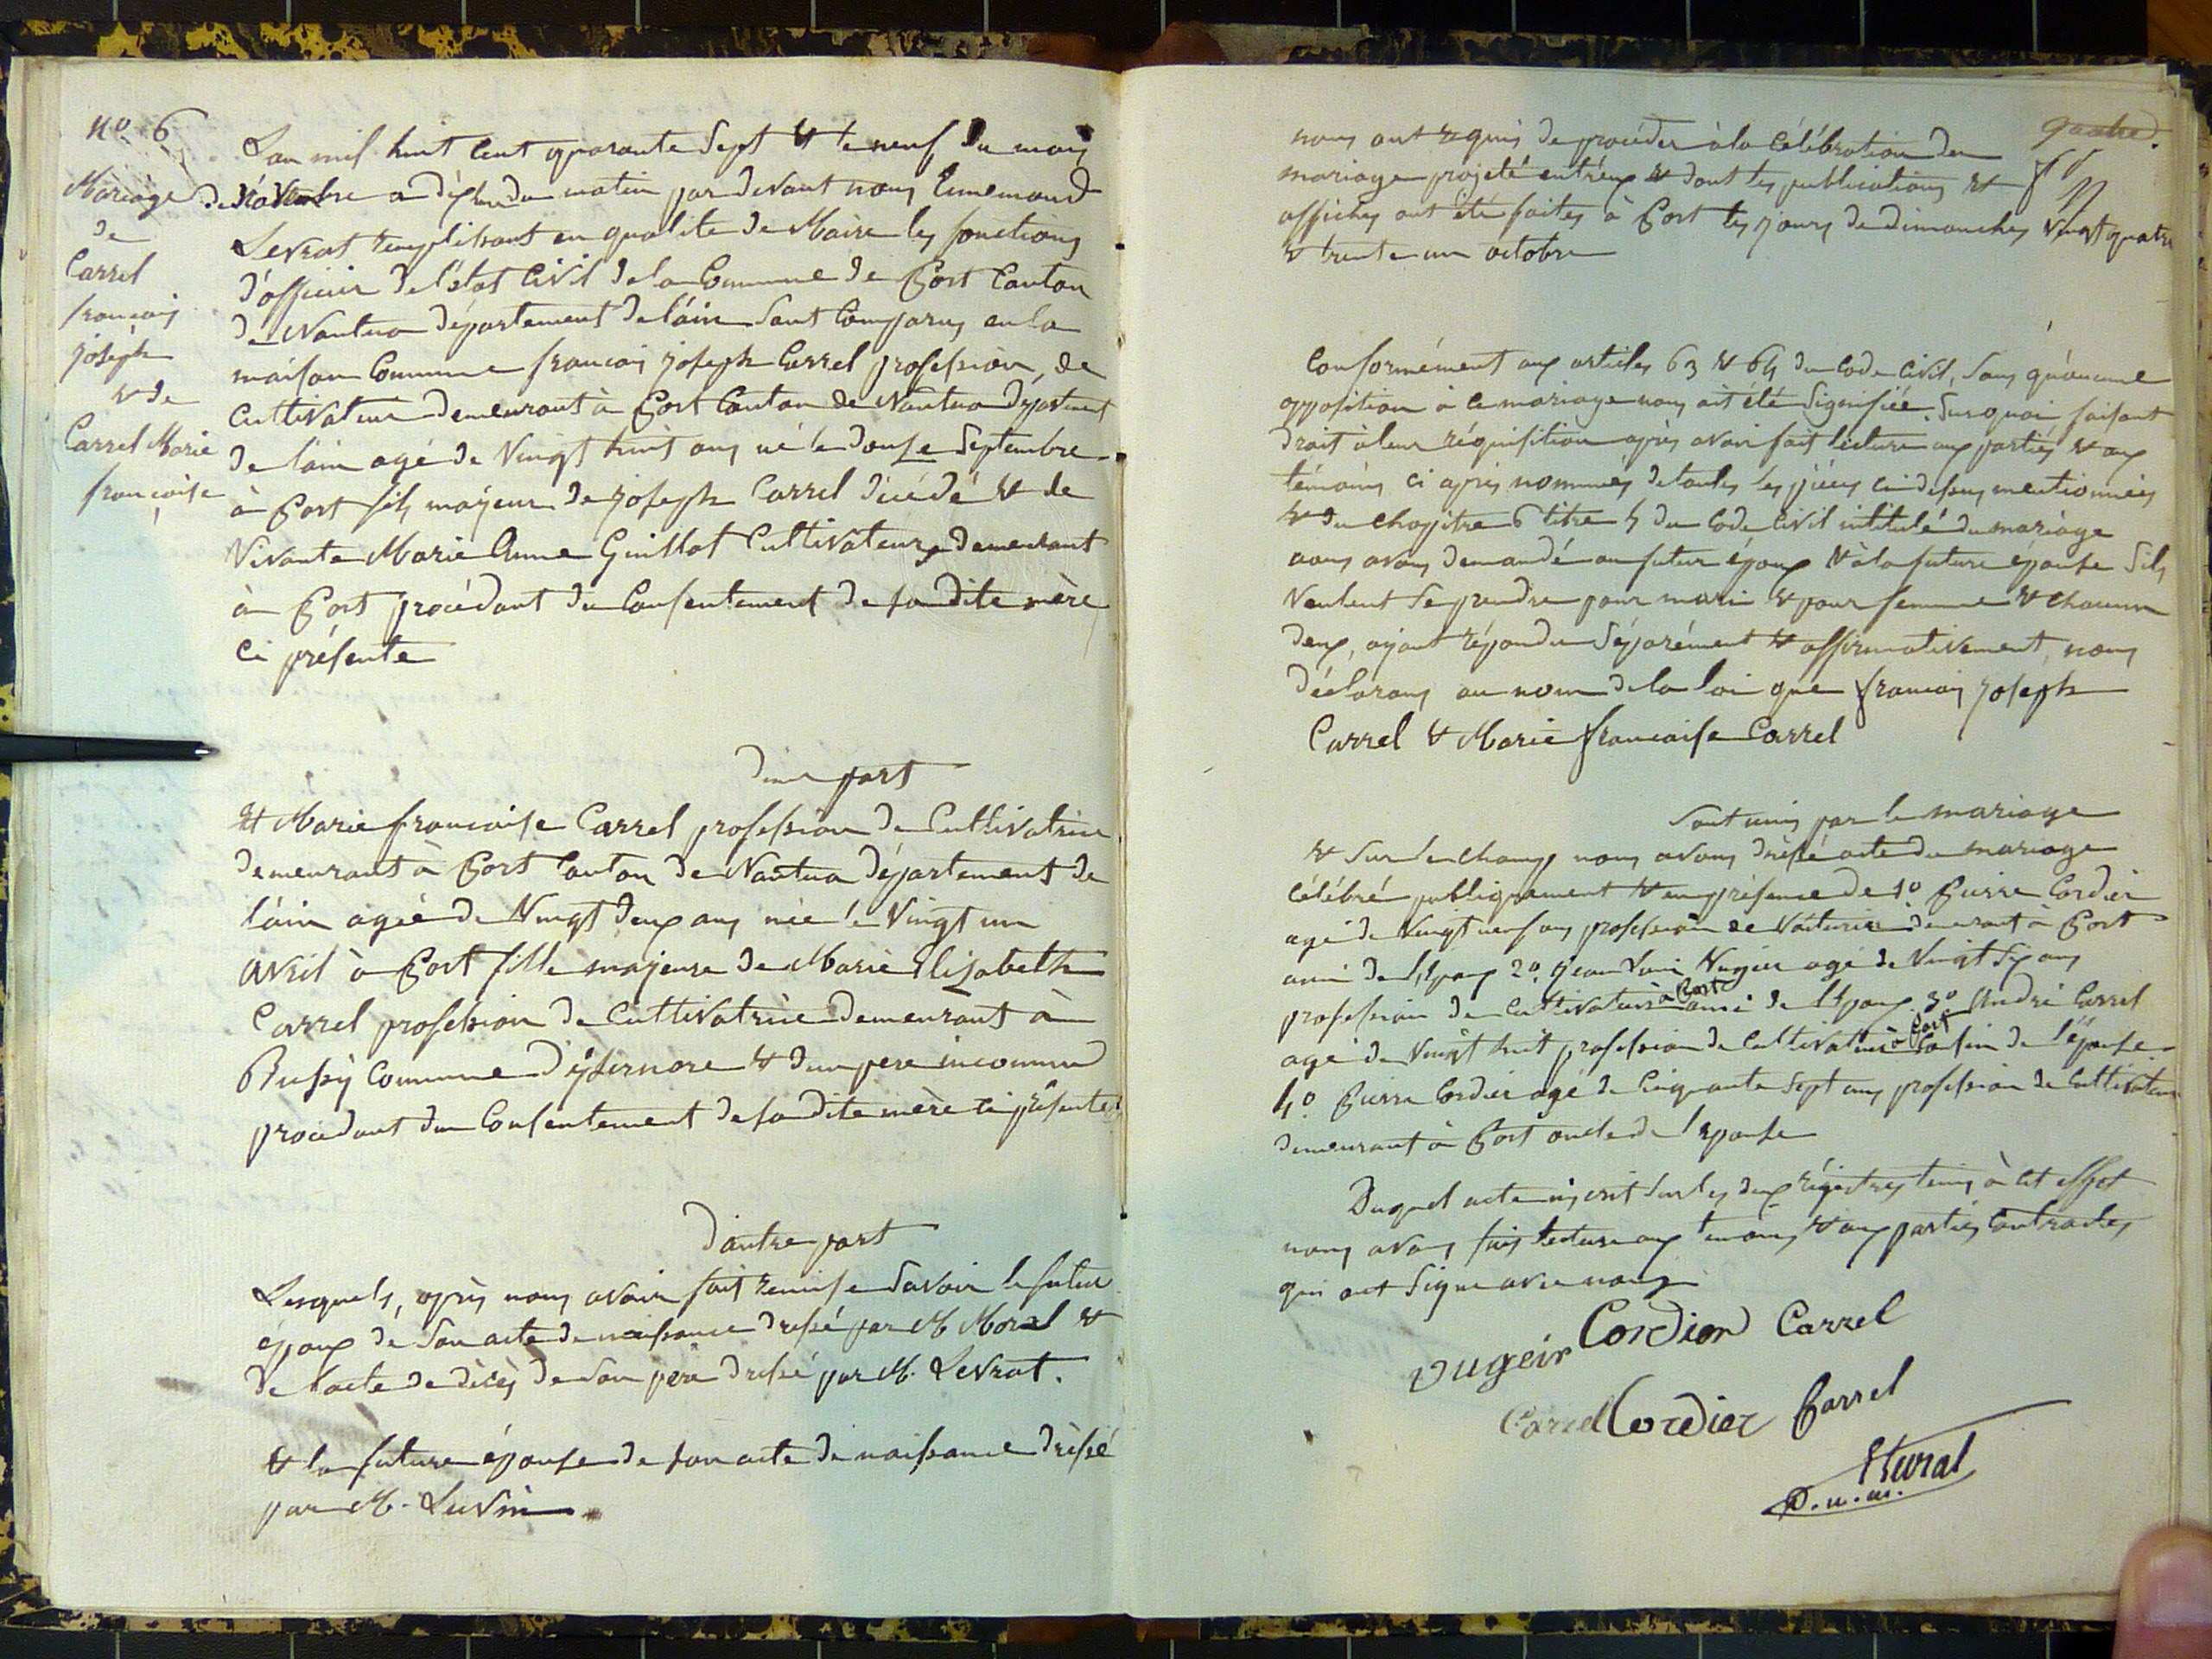 No 6
Mariage
de
Carrel
francois
joseph
& de
Carrel Marie
francoise
Lan mil huit cent quarante Sept & le neuf du mois
de novembre a dix heures du matin par devant nous
Levrat remplissant en qualité de Maire les fonctions
d'officier de l'état Civil de la Commune de Port Canton
de Nantua département de l'ain Sont Comparus en la
maison Commune francois joseph Carrel profession, de
Cultivateur demeurant à Port Canton de Nantua département
de l'ain agé de Vingt huit ans né le douse Septembre
à Port fils majeur de joseph Carrel décédé & de
Vivante Marie Anne Guillot Cultivateurs demeurant
à Port procédant du Consentement de sa dite mère
ci présente
dune part
& Marie francoise Carrel profession de Cultivatrice
demeurant à Port Canton de Nantua département de
l'ain agée de Vingt deux ans née le Vingt un
avril à Port fille majeure de Marie Elizabeth
Carrel profession de Cultivatrice demeurant à
Bussy Commune d'ysernore & dun pere inconnu
procedant du Consentement de sa dite mère ci présente
D'autre part
Lesquels, après nous avoir fait remise Savoir le futur
époux de Son acte de naissance dressé par M Moral &
de l'acte de décès de Son père dressé par M. Levrat.
& la future épouse de son acte de naissance dréssé
par M.
quatre.
nous ont requis de procéder à la Célébration du
mariage projeté entr'eux & dont les publications &
affiches ont été faites à Port les jours de dimanches Vingt quatre
& trente un octobre
Conformément aux articles 63 & 64 du Code Civil, Sans qu'aucune
opposition à ce mariage nous ait été Signifiée. Sur quoi faisant
droit à leur réquisition après avoir fait lecture aux parties & aux
témoins ci après nommés de toutes les pièces ci dessus mentionnées
& du chapitre 6 titre 5 du Code Civil intitulé du mariage
nous avons demandé au futur époux & à la future épouse S'ils
Veulent Se prendre pour mari & pour femme & chacun
deux, ayant répondu Séparément & affirmativement, nous
déclarons au nom de la loi que francois joseph
Carrel & Marie francoise Carrel
Sont unis par le mariage
& Sur le champ nous avons dréssé acte du mariage
célébré publiquement & en présence de 1o Pierre Cordier
agé de Vingt neuf ans profession de Voiturier demeurant à Port
ami de l'Epoux 2o jean Louis Vugier agé de Vingt Six ans
profession de Cultivateur à Port ami de l'Epoux 3o André Carrel
agé de Vingt huit profession de Cultivateur à Port Cousin de l'épouse
4o Pierre Cordier agé de Cinquante Sept ans profession de Cultivateur
demeurant à Port oncle de l'epouse
Duquel acte inscrit Sur les deux régistres tenus à cet effet
nous avons fait lecture aux temoins & aux parties Contractes
qui ont Signe avec nous
Vugeir Cordier Carrel
Carrel Cordier Carrel